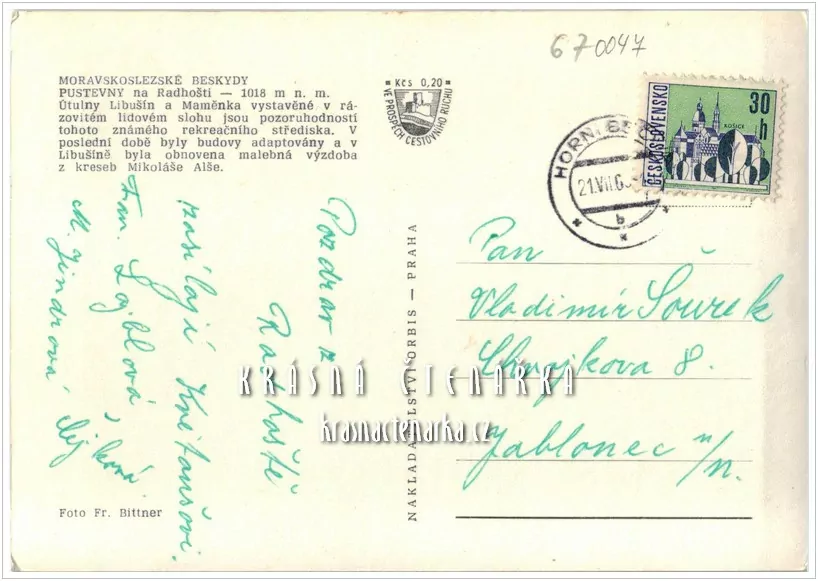 670047
MORAVSKOSLEZSKÉ BESKYDY
PUSTEVNY na Radhošti — 1018 m n. m.
Útulny Libušín a Maměnka vystavěné v rá-
zovitém lidovém slohu jsou pozoruhodností
tohoto známého rekreačního střediska. V
poslední době byly budovy adaptovány a v
Libušíně byla obnovena malebná výzdoba
z kreseb Mikoláše Alše.
Kčs 0,20
VE PROSPĚCH CESTOVNÍHO RUCHU
HORNÍ
21.VII.6
b
ČESKOSLOVENSKO
30 h
KOŠICE
Pozdrav z
Radhoště
zasílají
Fan.
M. Jindrová
Pan
Vladimír Souček
8.
Jablonec n/N.
NAKLADATELSTVÍ ORBIS — PRAHA
KRÁSNÁ ČTENÁŘKA
krasnactenarka.cz
Foto Fr. Bittner